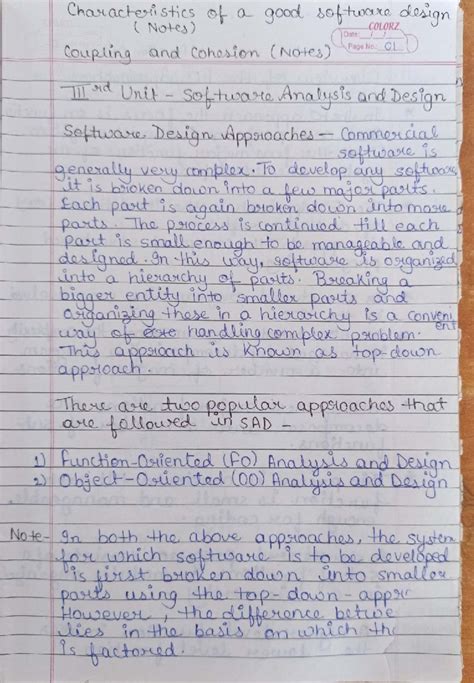 Characteristics of a good software design
(Notes)
COLORZ
Date: / /
Page No.: C1
Coupling and Cohesion (Notes)
IIIrd Unit - Software Analysis and Design
Software Design Approaches - Commercial
software is
generally very complex. To develop any software
it is broken down into a few major parts.
Each part is again broken down into more
parts. The process is continued till each
part is small enough to be manageable and
designed. In this way, software is organized
into a hierarchy of parts. Breaking a
bigger entity into smaller parts and
organizing these in a hierarchy is a convenient
way of handling complex problem.
This approach is known as top-down
approach.
There are two popular approaches that
are followed in SAD -
1) Function-Oriented (FO) Analysis and Design
2) Object-Oriented (OO) Analysis and Design
Note - In both the above approaches, the system
for which software is to be developed
is first broken down into smaller
parts using the top-down - appr
However, the difference betwe
lies in the basis on which the
is factored.